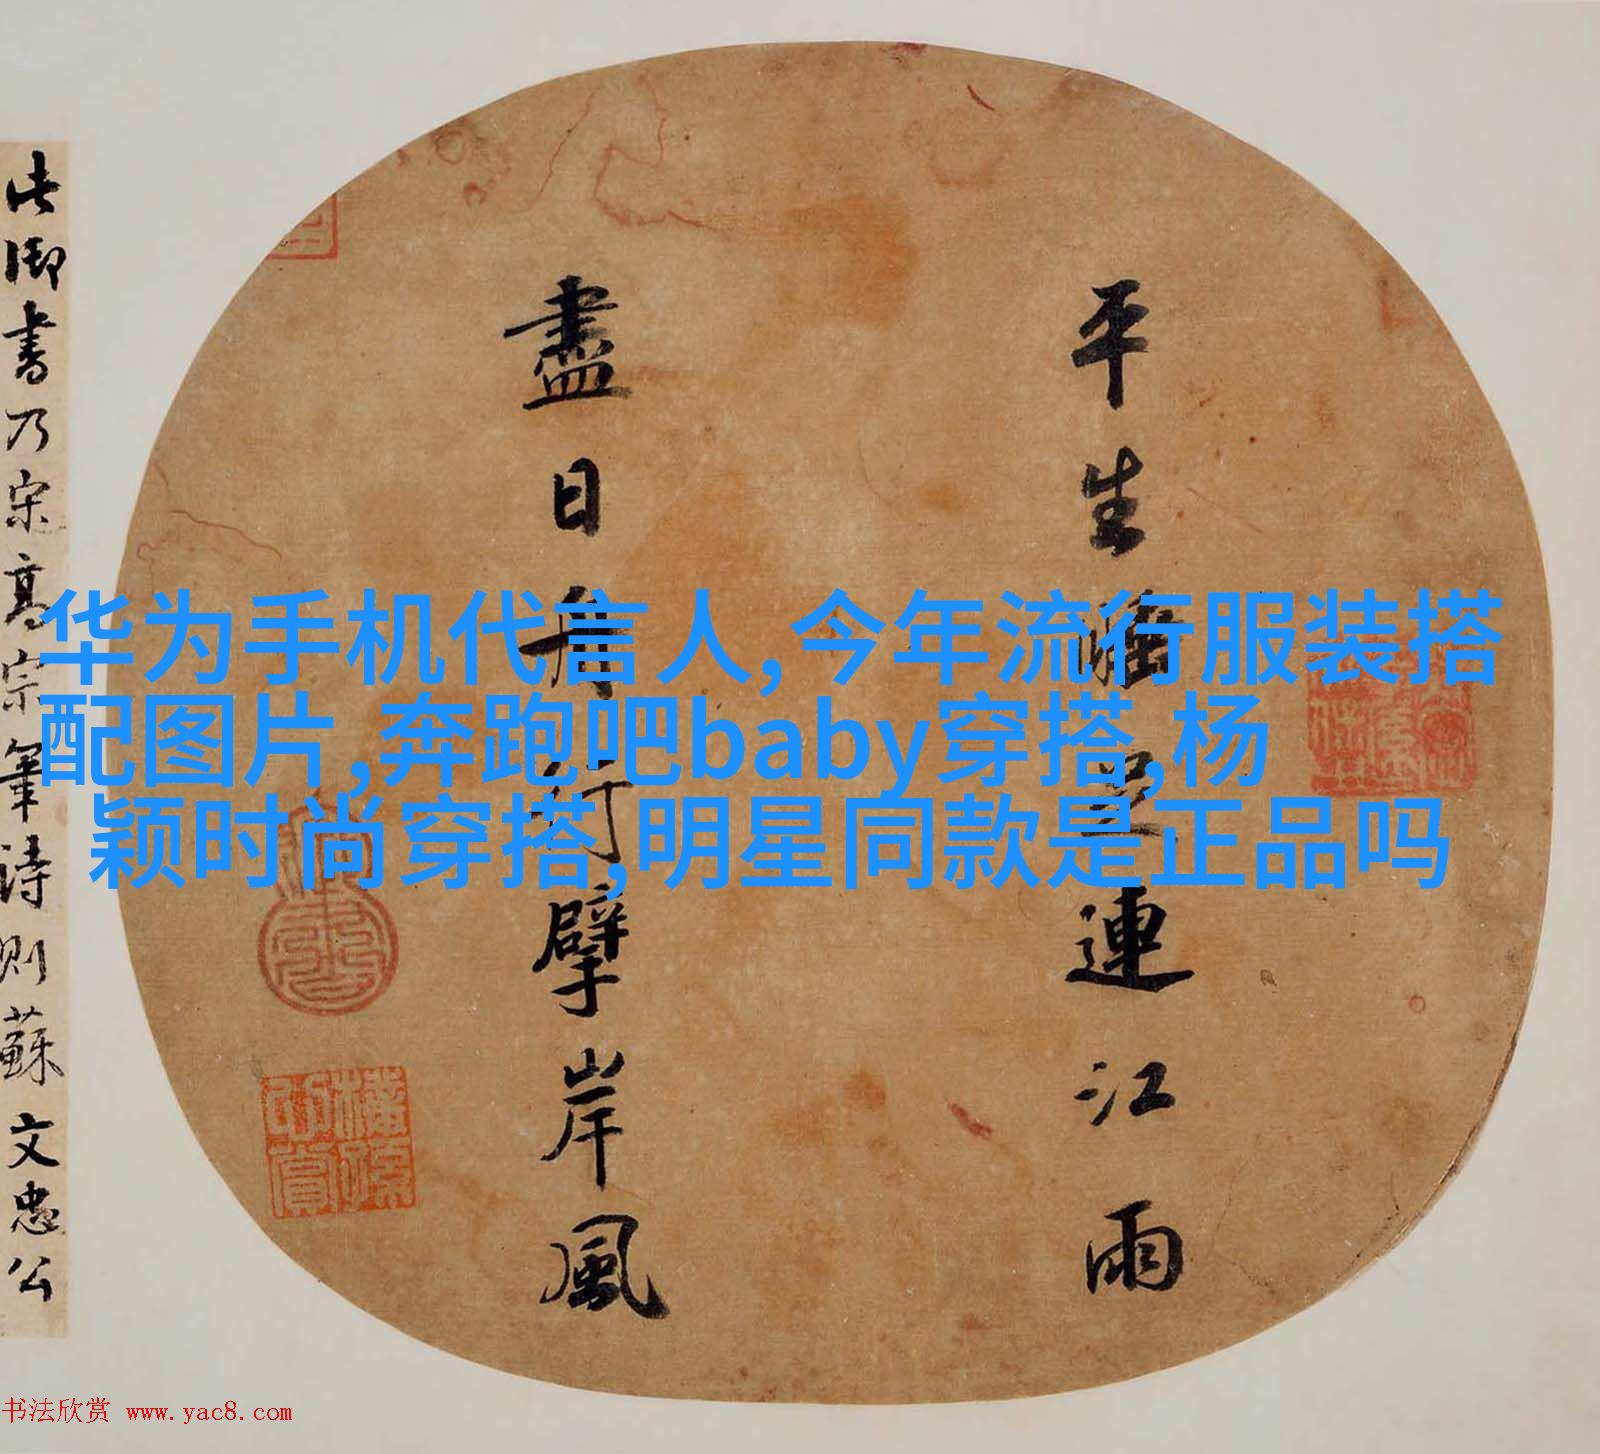 华为手机代言人,今年流行服装搭
配图片,奔跑吧baby穿搭,杨
颖时尚穿搭,明星同款是正品吗
平生睡足連江雨
盡日舟行擘岸風
此御書乃宋高宗筆詩則蘇文忠公
书法欣赏 www.yac8.com